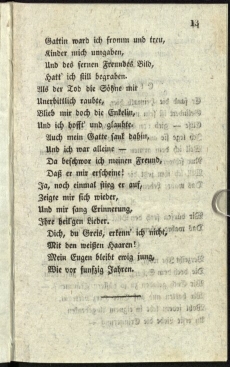 14
Gattin ward ich fromm und treu,
Kinder mich umgaben,
Und des fernen Freundes Bild,
Hatt' ich still begraben.
Als der Tod die Söhne mir
Unerbittlich raubte,
Blieb mir doch die Enkelin,
Und ich hofft' und glaubte.
Auch mein Gatte sank dahin,
Und ich war alleine —
Da beschwor ich meinen Freund,
Daß er mir erscheine!
Ja, noch einmal stieg er auf,
Zeigte mir sich wieder,
Und mir sang Erinnerung,
Ihre heil'gen Lieder.
Dich, du Greis, erkenn' ich nicht,
Mit den weißen Haaren!
Mein Eugen bleibt ewig jung,
Wie vor funfzig Jahren.